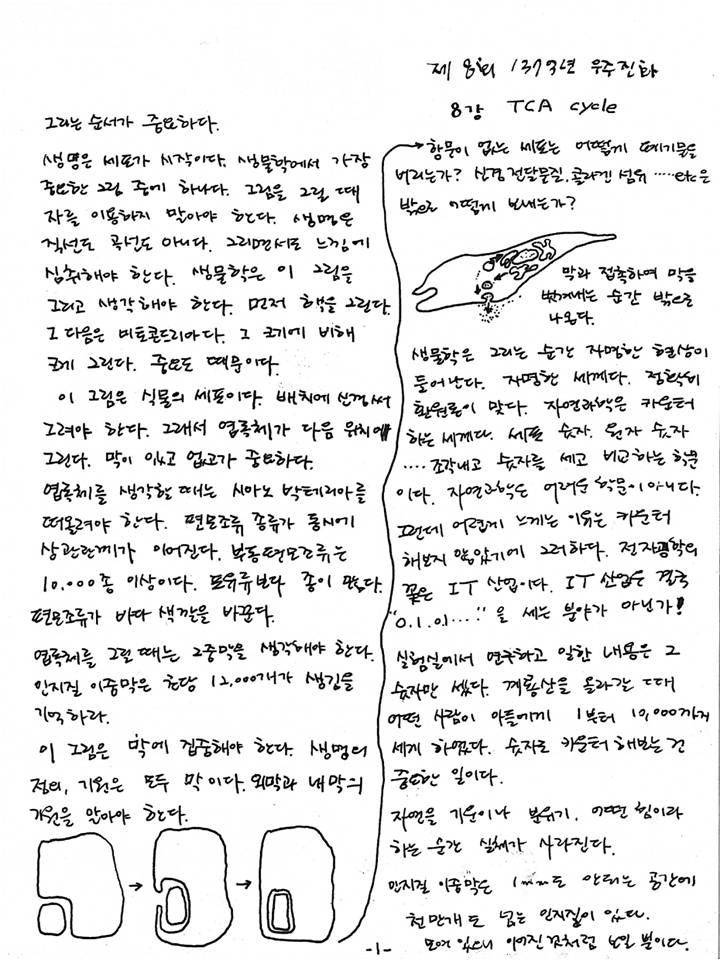 제 8회 137억년 우주진화
8강 TCA cycle
그리는 순서가 중요하다.
생명은 세포가 시작이다. 생물학에서 가장
중요한 그림 중에 하나다. 그림을 그릴 때
자를 이용하지 말아야 한다. 생명은
직선도 곡선도 아니다. 그리면서도 느낌에
심취해야 한다. 생물학은 이 그림을
그리고 생각해야 한다. 먼저 핵을 그린다.
그 다음은 미토콘드리아다. 그 크기에 비해
크게 그린다. 중요도 때문이다.
이 그림은 식물의 세포이다. 배치에 신경써
그려야 한다. 그래서 엽록체가 다음 위치에
그린다. 막이 있고 없고가 중요하다.
엽록체를 생각할 때는 시아노 박테리아를
떠올려야 한다. 편모조류 종류가 동시에
상관관계가 이어진다. 쌍동편모조류는
10.000종 이상이다. 포유류보다 종이 많다.
편모조류가 바다 색깔을 바꾼다.
엽록체를 그릴 때는 2중막을 생각해야 한다.
인지질 이중막은 초당 12,000개가 생김을
기억하라.
이 그림은 막에 집중해야 한다. 생명의
정의, 기원은 모두 막이다. 외막과 내막의
기원을 알아야 한다.
항문이 없는 세포는 어떻게 폐기물을
버리는가? 신경전달물질, 콜라겐 섬유 ..... etc은
밖으로 어떻게 보내는가?
막과 접촉하여 막을
벗겨내는 순간 밖으로
나온다.
생물학은 그리는 순간 자명한 현상이
들어난다. 자명한 세계다. 정확히
환원론이 맞다. 자연과학은 카운터
하는 세계다. 세포 숫자. 원자 숫자
.... 조각내고 숫자를 세고 비교하는 학문
이다. 자연과학은 어려운 학문이 아니다.
그런데 어렵게 느끼는 이유는 카운터
해보지 않았기에 그러하다. 전자공학의
꽃은 IT 산업이다. IT 산업은 결국
"0.1.0.1....."을 세는 분야가 아닌가!
실험실에서 연구하고 일한 내용은 그
숫자만 셌다. 계룡산을 올라갈 때
어떤 사람이 아들에게 1부터 10,000까지
세게 하였다. 숫자로 카운터 해보는 건
중요한 일이다.
자연을 기운이나 분위기, 어떤 힘이라
하는 순간 실체가 사라진다.
인지질 이중막은 1mm도 안되는 공간에
천만개도 넘는 인지질이 있다.
모여 있으니 이어진 것처럼 보일 뿐이다.
-1-